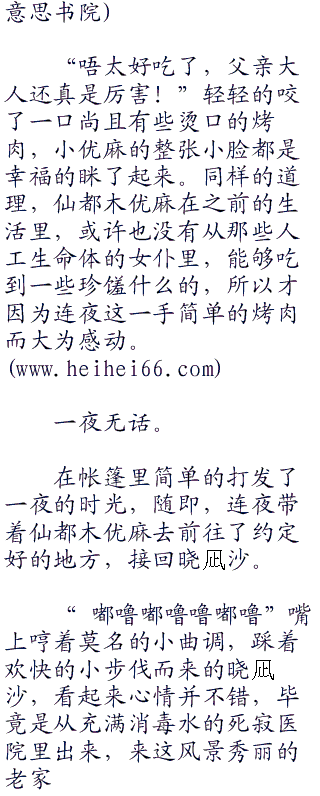 意思书院)
“唔太好吃了，父亲大
人还真是厉害！”轻轻的咬
了一口尚且有些烫口的烤
肉，小优麻的整张小脸都是
幸福的眯了起来。同样的道
理，仙都木优麻在之前的生
活里，或许也没有从那些人
工生命体的女仆里，能够吃
到一些珍馐什么的，所以才
因为连夜这一手简单的烤肉
而大为感动。
(www.heihei66.com)
一夜无话。
在帐篷里简单的打发了
一夜的时光，随即，连夜带
着仙都木优麻去前往了约定
好的地方，接回晓凪沙。
“ 嘟噜嘟噜噜嘟噜”嘴
上哼着莫名的小曲调，踩着
欢快的小步伐而来的晓凪
沙，看起来心情并不错，毕
竟是从充满消毒水的死寂医
院里出来，来这风景秀丽的
老家